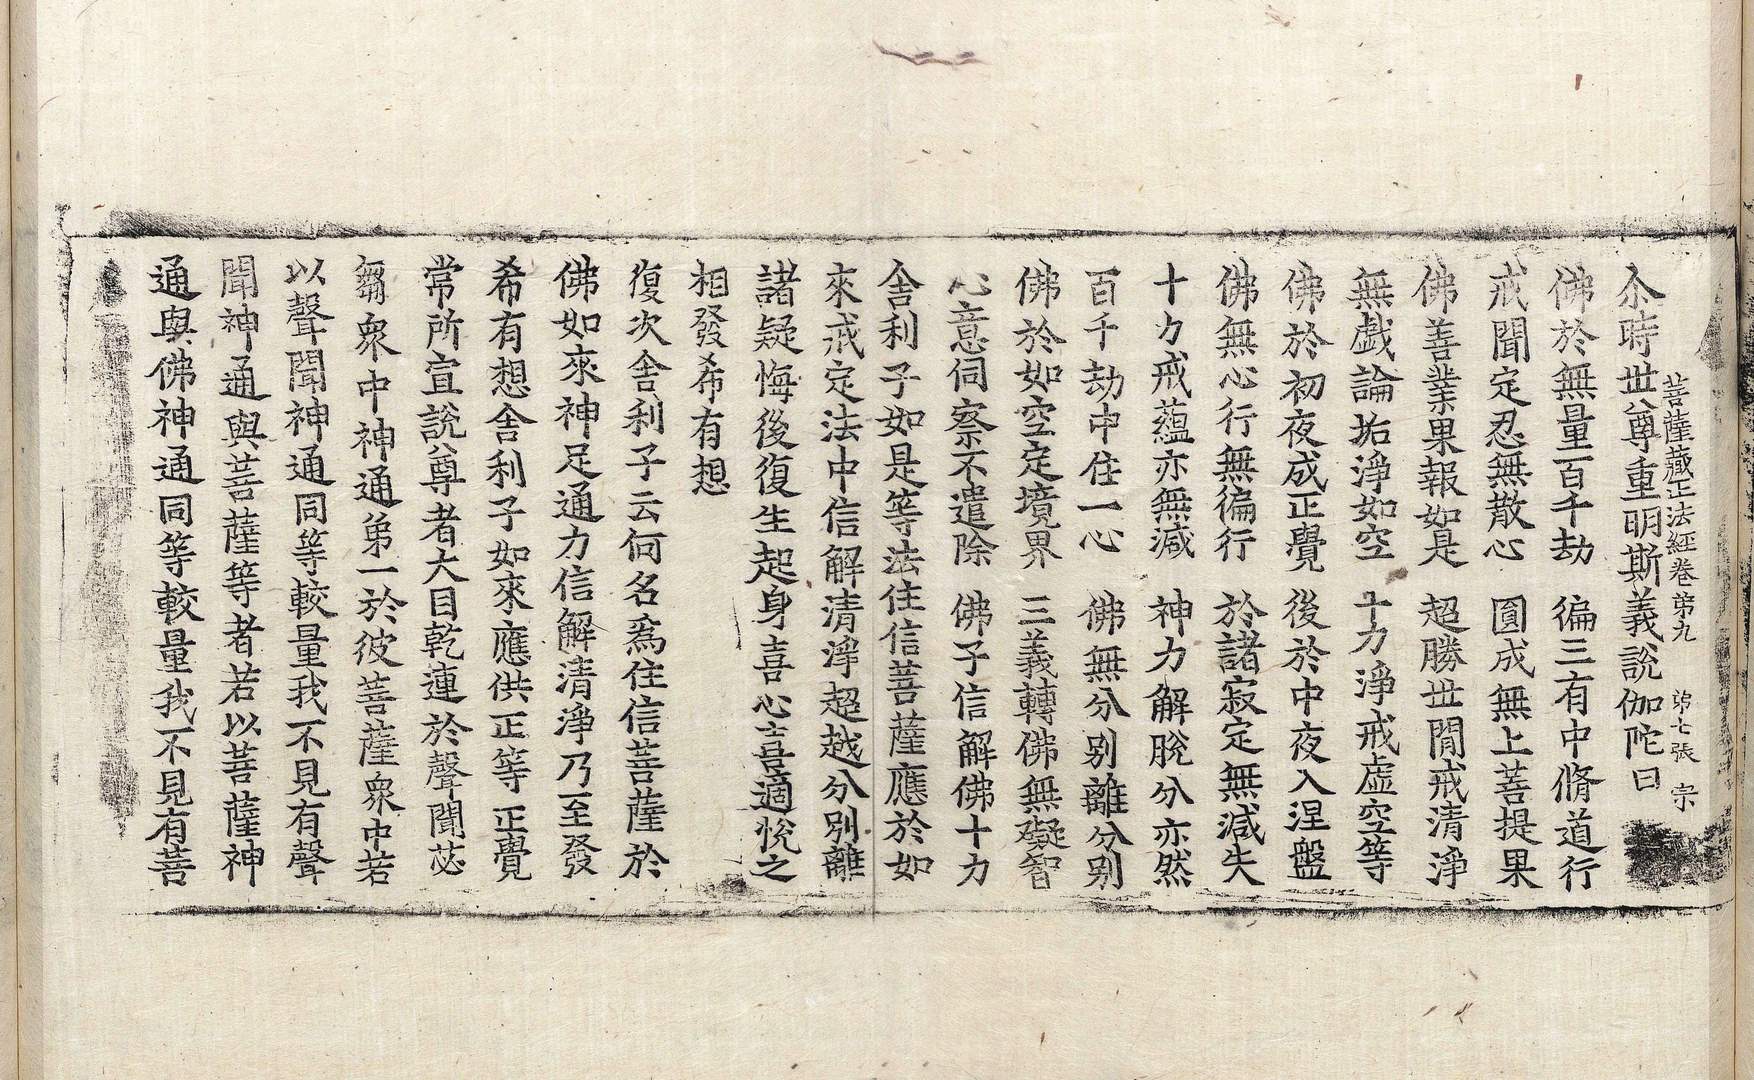 菩薩藏正法經卷第九 第七張 宗
尒時世尊重明斯義說伽陀曰
佛於無量百千劫 徧三有中脩道行
戒聞定忍無散心 圓成無上菩提果
佛善業果報如是 超勝世閒戒清淨
無戲論垢淨如空 十力淨戒虛空等
佛於初夜成正覺 後於中夜入涅盤
佛無心行無徧行 於諸寂定無減失
十力戒蘊亦無減 神力解脫分亦然
百千劫中住一心 佛無分别離分别
佛於如空定境界 三義轉佛無礙智
心意伺察不遣除 佛子信解佛十力
舍利子如是等法住信菩薩應於如
來戒定法中信解清淨超越分別離
諸疑悔後復生起身喜心喜適悅之
相發希有想
復次舍利子云何名爲住信菩薩於
佛如來神足通力信解清淨乃至發
希有想舍利子如來應供正等正覺
常所宣說尊者大目乾連於聲聞苾
芻衆中神通第一於彼菩薩衆中若
以聲聞神通同等較量我不見有聲
聞神通與菩薩等者若以菩薩神
通與佛神通同等較量我不見有菩